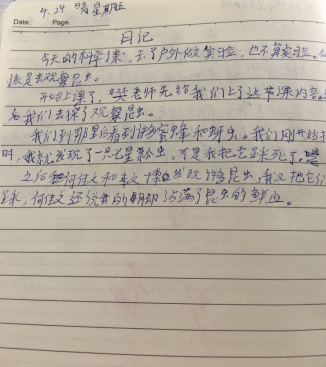 4.24 晴 星期五
Date. Page
日记
今天的科学课，去了户外做实验，也不算实验。
该是去观察昆虫。
开始上课了，樊老师先给我们上了这节课内容。
我们去操了观察昆虫。
我们到那里后看到许多蜜蜂和蚜虫。我们刚开始
时，我就发现了一只七星瓢虫，可是我把它踩死了。
之后 何佳文和 发现许多昆虫，我又把它们
踩，何佳文还说我的鞋 沾满了昆虫的鲜血。